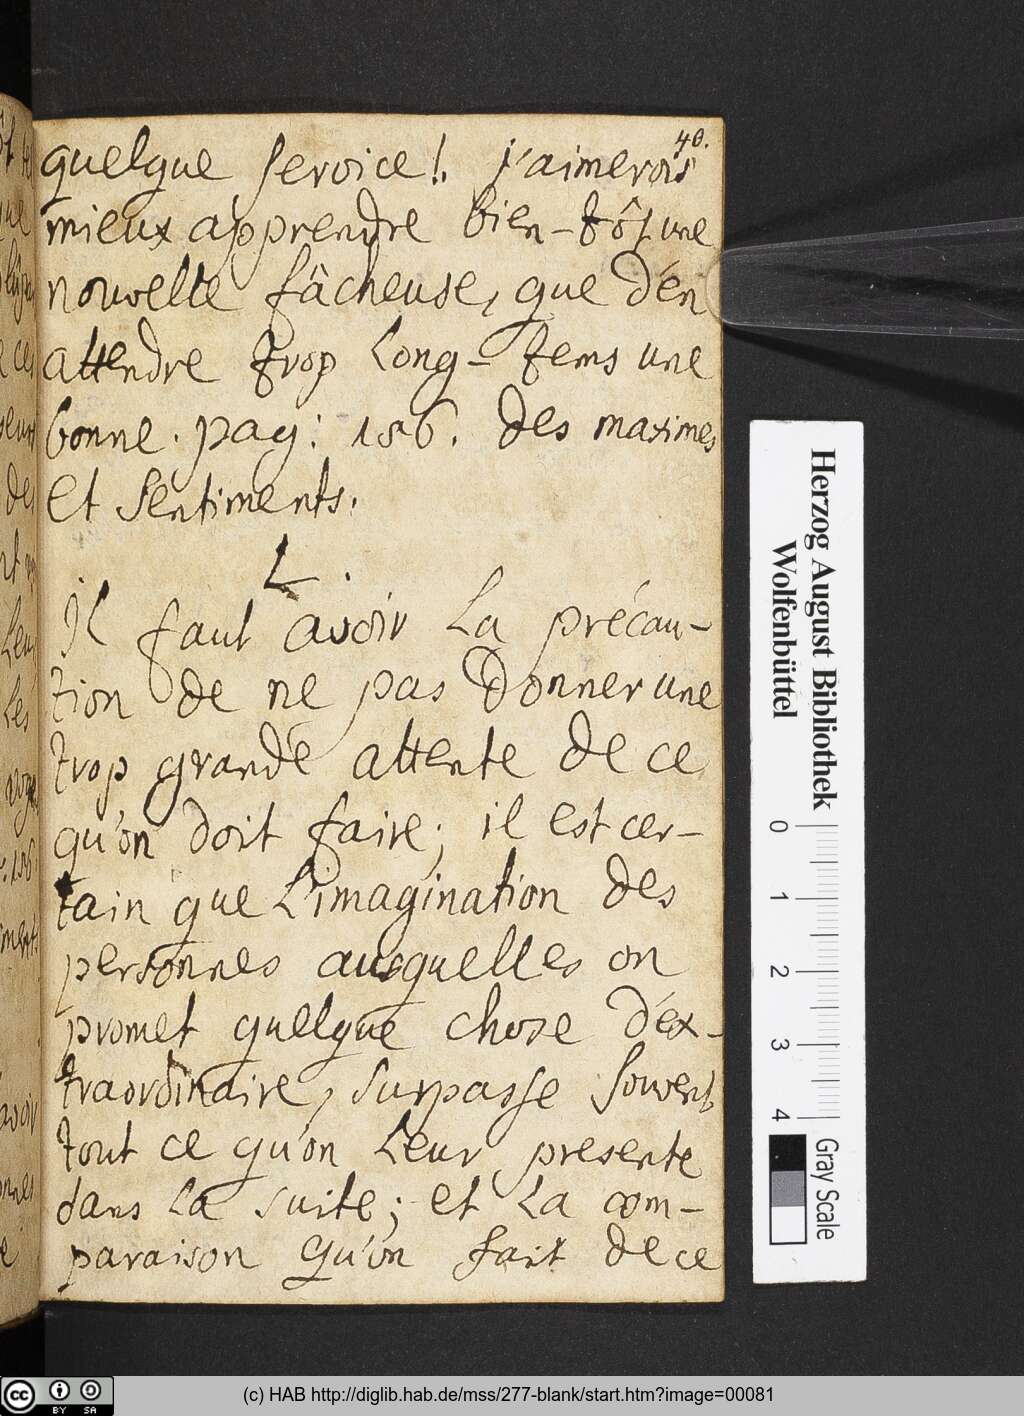 40.
quelque service!. j'aimerois
mieux apprendre bien-tôt une
nouvelle fâcheuse, que d'en
attendre trop long-tems une
bonne. pag: 186. des maximes
et sentiments.
L.
Il faut avoir la précau-
tion de ne pas donner une
trop grande attente de ce
qu'on doit faire; il est cer-
tain que l'imagination des
personnes ausquelles on
promet quelque chose d'ex-
traordinaire, surpasse souvent
tout ce qu'on leur presente
dans la suite; et la com-
paraison qu'on fait de ce
Herzog August Bibliothek
Wolfenbüttel
0 1 2 3 4
Gray Scale
cc BY SA
(c) HAB http://diglib.hab.de/mss/277-blank/start.htm?image=00081